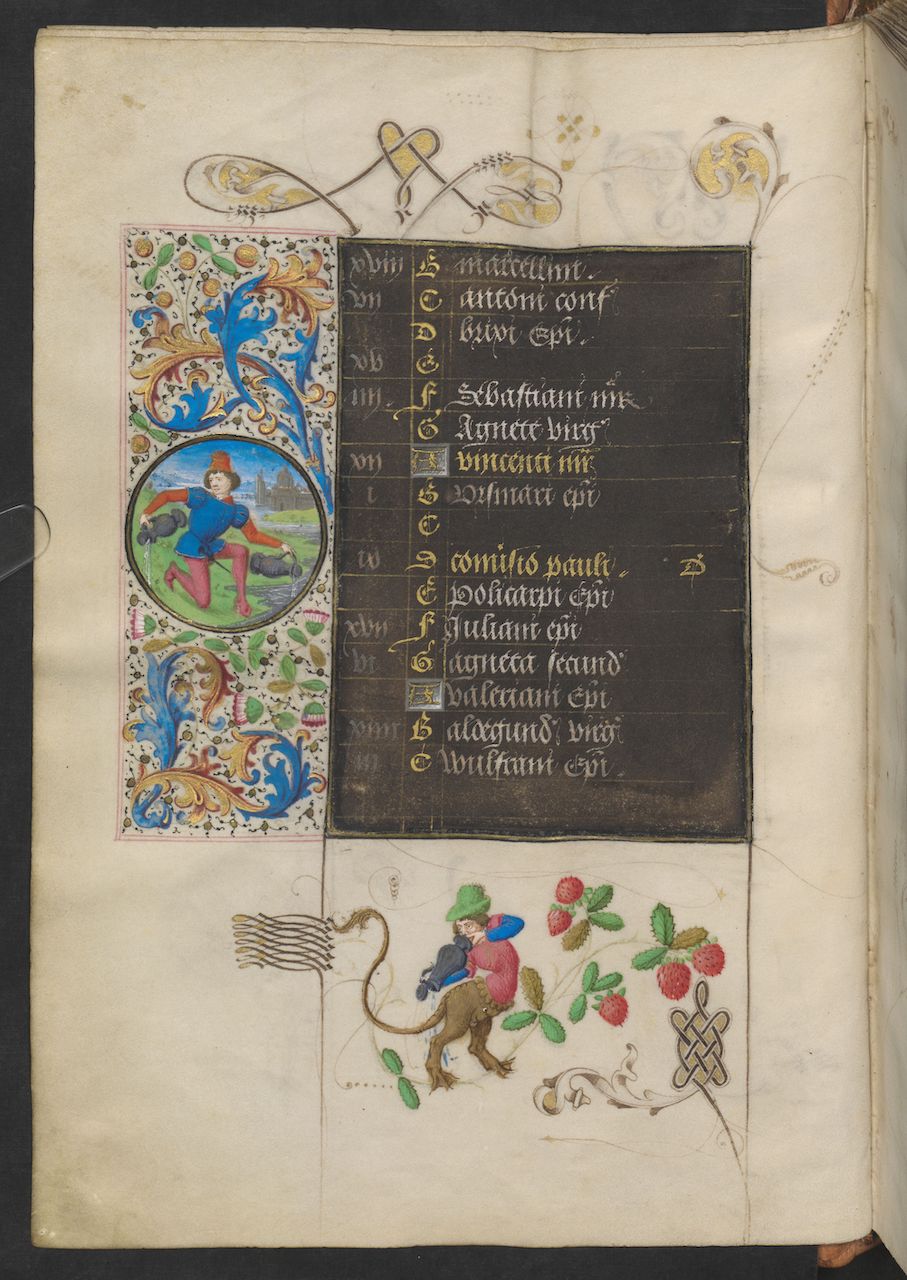 xviij B marcellini.
vij C antoni conf
D brixi Epi.
xv E
iiij. F Sebastiani mr
G Agnete virg
xij A vincenti mr
i B
C
ix D comisio pauli. D
E Policarpi Epi
xvij F Juliani epi
vi G agneta secund
A valeriani Epi
xiiii B aldegund virg
iii C wulfrani Epi.